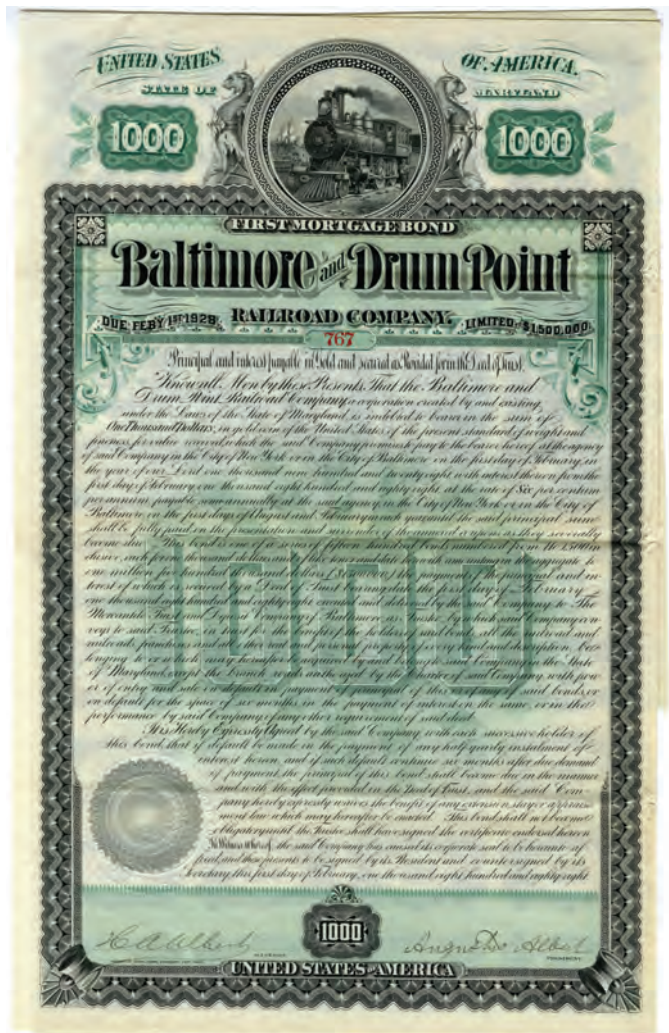 UNITED STATES OF AMERICA.
STATE OF MARYLAND
1000 1000
FIRST MORTGAGE BOND
Baltimore and Drum Point
RAILROAD COMPANY.
DUE FEBY 1ST 1928. LIMITED TO $1,500,000.
767
Principal and interest payable in Gold and secured as Provided for in the Deed of Trust.
Know all Men by these Presents, That the Baltimore and
Drum Point Railroad Company, a corporation created by and existing
under the Laws of the State of Maryland is indebted to bearer in the sum of
One Thousand Dollars, in gold coin of the United States of the present standard of weight and
fineness, for value received, which the said Company promises to pay to the bearer hereof at the agency
of said Company in the City of New York or in the City of Baltimore on the first day of February, in
the year of our Lord one thousand nine hundred and twenty eight with interest thereon from the
first day of February one thousand eight hundred and eighty eight, at the rate of Six per centum
per annum, payable semi annually at the said agency in the City of New York or in the City of
Baltimore, on the first days of August and February in each year until the said principal sum
shall be fully paid on the presentation and surrender of the annexed coupons as they severally
become due. This bond is one of a series of fifteen hundred bonds numbered from 1 to 1,500 in
clusive, each for one thousand dollars and of like tenor and date herewith amounting in the aggregate to
one million five hundred thousand dollars [$1,500,000] the payment of the principal and in
terest of which is secured by a Deed of Trust bearing date the first day of February
one thousand eight hundred and eighty eight executed and delivered by the said Company to The
Mercantile Trust and Deposit Company of Baltimore as trustee, by which said Company con
veys to said Trustee, in trust for the benefit of the holders of said bonds, all the railroad and
railroads, franchises and all the real and personal property of every kind and description, be
longing to or which may hereafter be acquired by and belong to said Company in the State
of Maryland, except the branch roads authorized by the charter of said Company, with pow
er of entry and sale on default in payment of principal of this or any of said bonds, or
on default for the space of six months in the payment of interest on the same, or in the
performance by said Company of any other requirement of said deed.
It is Hereby Expressly Agreed by the said Company with each successive holder of
this bond that if default be made in the payment of any half yearly instalment of
interest hereon, and if such default continue six months after due demand
of payment, the principal of this bond shall become due in the manner
and with the effect provided in the Deed of Trust, and the said Com
pany hereby expressly waives the benefit of any extension, stay or appraise
ment law which may hereafter be enacted. This bond shall not become
obligatory until the Trustee shall have signed the certificate endorsed hereon
In Witness whereof, the said Company has caused its corporate seal to be hereunto af
fixed, and these presents to be signed by its President and countersigned by its
Secretary this first day of February, one thousand eight hundred and eighty eight.
1000
H A Albert Augustus Albert
PRESIDENT.
UNITED STATES OF AMERICA